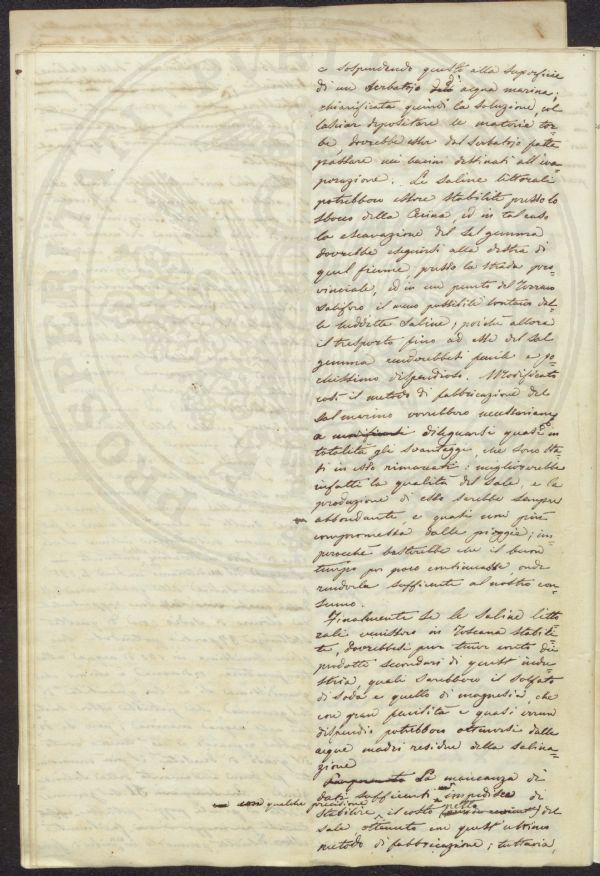 e sospendendo queste alla superficie
di un serbatojo di acqua marina;
chiarificata quindi la soluzione, col
lasciar depositare le materie tor=
be dovrebbe esser dal serbatojo fatta
passare nei bacini destinati all'eva=
porazione. Le saline littorali
potrebbero essere stabilite presso lo
sbocco della Cecina, ed in tal caso
la escavazione del sal gemma
dovrebbe eseguirsi alla destra di
quel fiume, presso la strada pro=
vinciale, ed in un punto del terreno
salifero il meno possibile lontano dal=
le suddette saline; poichè allora
il trasporto fino ad esse del sal
gemma renderebbesi facile e po=
chissimo dispendioso. Modificato
così il metodo di fabbricazione del
sal marino verrebbero necessariamen
a dileguarsi quasi in
totalità gli svantaggi, che sono sta=
ti in esso rimarcati: migliorerebbe
infatti la qualità del sale, e la
produzione di esso sarebbe sempre
abbondante, e quasi non più
compromessa dalle pioggie; im=
perocchè basterebbe che il buon
tempo per poco continuasse onde
renderla sufficiente al nostro con=
sumo.
Finalmente se le saline litto=
rali venissero in Toscana stabili=
te, dovrebbesi pur tener conto dei
prodotti secondari di quest'indu=
stria, quali sarebbero il solfato
di soda e quello di magnesia, che
con gran facilità e quasi verun
dispendio potrebbero ottenersi dalle
acque madri residue della salina=
zione
La mancanza di
dati sufficienti impedisce di
qualche precisione
stabilire il costo del
sale ottenuto con quest'ultimo
metodo di fabbricazione; tuttavia,